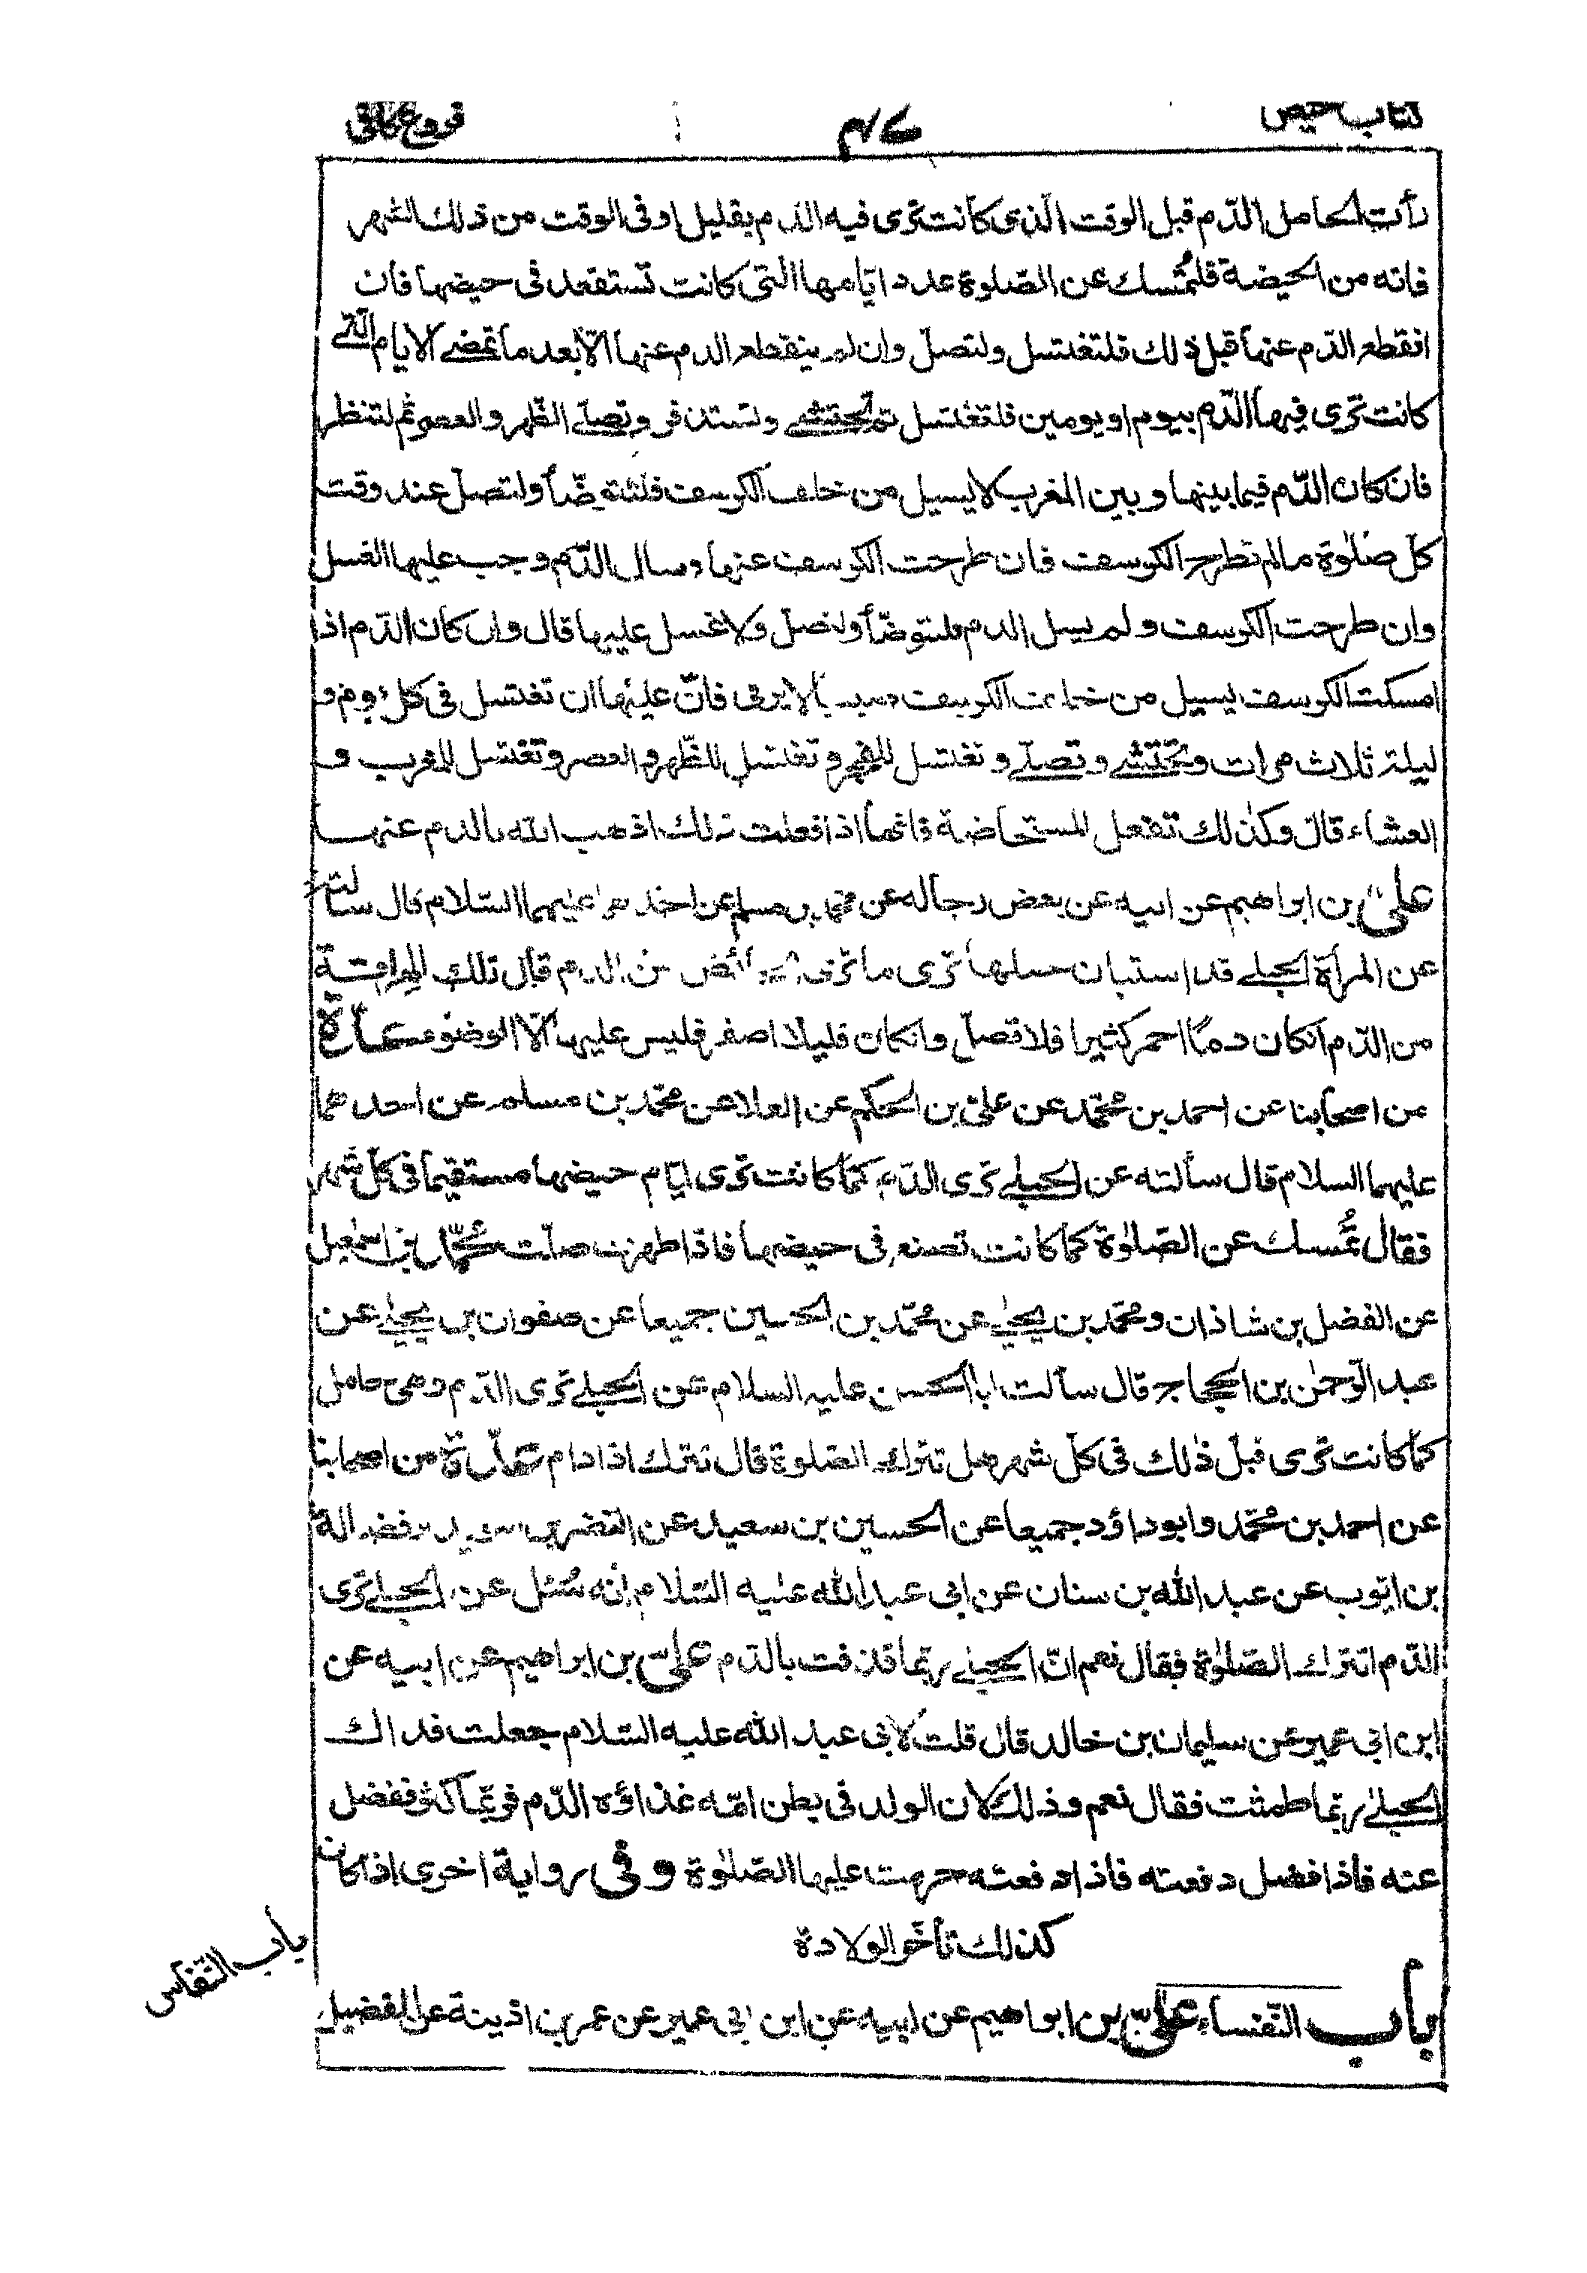 كتاب حيض
فروع كافى
رأت الحامل الدّم قبل الوقت الّذى كانت ترى فيه الدّم بقليل اوفى الوقت من ذلك الشهر
فانه من الحيضة فلتُمسك عن الصّلوة عدد ايّامها التى كانت تستقعد فى حيضها فان
انقطع الدّم عنها قبل ذلك فلتغتسل ولتصلّ وان لم ينقطع الدم عنها الّا بعد ما تمضے الايام التے
كانت ترى فيها الدّم بيوم او يومين فلتغتسل ثم تحتشے وتستذفر وتصلّے الظّهر والعصر ثم لتنظر
فان كان الدّم فيما بينها وبين المغرب لا يسيل من خلف الكرسف فلتتوضّأ ولتصلّ عند وقت
كلّ صلوة مالم تطرح الكرسف فان طرحت الكرسف عنها وسال الدّم وجب عليها الغسل
وان طرحت الكرسف ولم يسل الدم فلتتوضّأ ولتصلّ ولا غسل عليها قال وان كان الدّم اذا
امسكت الكرسف يسيل من خلف الكرسف صبيبا لا يرقى فانّ عليها ان تغتسل فى كلّ يوم و
ليلة ثلاث مرات وتحتشے وتصلّے وتغتسل للفجر وتغتسل للظّهر والعصر وتغتسل للمغرب و
العشاء قال وكذلك تفعل المستحاضة فانها اذا فعلت ذلك اذهب الله بالدم عنها
علىّ بن ابراهيم عن ابيه عن بعض رجاله عن محمّد بن مسلم عن احدهما عليهما السّلام قال سألته
عن المرأة الحبلے قد استبان حملها ترى ما ترى الحائض من الدم قال تلك الهراقة
من الدّم ان كان دمًا احمر كثيرا فلا تصلّ وان كان قليلا اصفر فليس عليها الّا الوضوء عدّة
من اصحابنا عن احمد بن محمّد عن علىّ بن الحكم عن العلا عن محمّد بن مسلم عن احدهما
عليهما السلام قال سألته عن الحبلے ترى الدّم كما كانت ترى ايّام حيضها مستقيما فى كلّ شهر
فقال تُمسك عن الصّلوة كما كانت تصنع فى حيضها فاذا طهرت صلّت محمّد بن اسمعيل
عن الفضل بن شاذان ومحمّد بن يحيٰے عن محمّد بن الحسين جميعا عن صفوان بن يحيٰے عن
عبد الرّحمٰن بن الحجاج قال سألت ابا الحسن عليه السلام عن الحبلے ترى الدّم وهى حامل
كما كانت ترى قبل ذٰلك فى كلّ شهر هل تترك الصّلوة قال تترك اذا دام عدّة من اصحابنا
عن احمد بن محمّد وابو داؤد جميعا عن الحسين بن سعيد عن النضر بن سويد وفضالة
بن ايّوب عن عبد الله بن سنان عن ابى عبد الله عليه السّلام انّه سُئل عن الحبلے ترى
الدّم اتترك الصّلوٰة فقال نعم انّ الحبلے ربّما قذفت بالدّم علىّ بن ابراهيم عن ابيه عن
ابن ابى عمير عن سليمان بن خالد قال قلت لابى عبد الله عليه السّلام جعلت فداك
الحبلےٰ ربّما طمثت فقال نعم وذلك لان الولد فى بطن امّه غذاؤه الدّم فربّما كثر ففضل
عنه فاذا فضل دفعته فاذا دفعته حرمت عليها الصّلوٰة وفى رواية اخرى اذا كان
كذلك تأخّر الولادة
باب النّفاس
باب النّفساء علىّ بن ابراهيم عن ابيه عن ابن ابى عمير عن عمر بن اذينة عن الفضيل